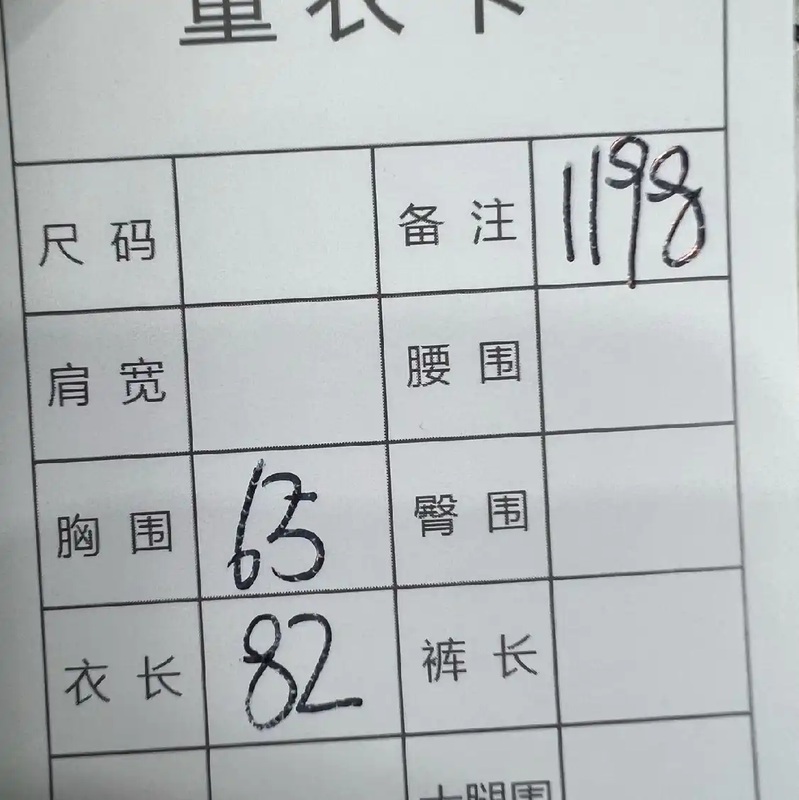 量衣卡
尺码 备注 1198
肩宽 腰围
胸围 65 臀围
衣长 82 裤长
大腿围